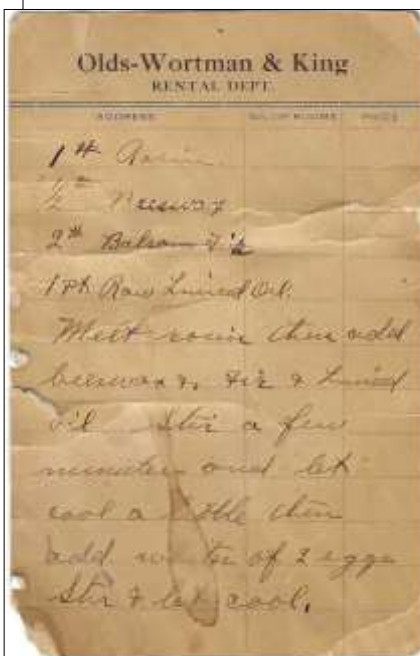 Olds-Wortman & King
RENTAL DEPT.
ADDRESS NO. OF ROOMS PRICE
1 # Rosin.
1/2 # Beeswax
2 # Balsam Fir
1 Pt Raw Linseed Oil.
Melt rosin then add
beeswax & Fir & Linseed
oil Stir a few
minutes and let
cool a little then
add whites of 2 eggs
Stir & let cool.